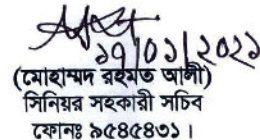 ১৭/০১/২০২১
(মোহাম্মদ রহমত আলী)
সিনিয়র সহকারী সচিব
ফোনঃ ৯৫৪৫৪৩১।